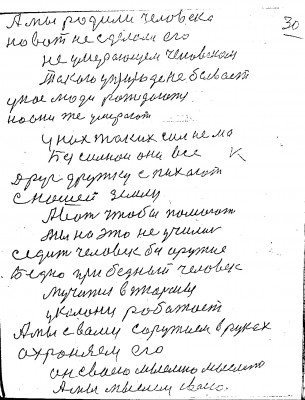 А мы родили человека
но вот не сделали его
не умирающем человеком
такого у природе не бывает
у нас люди рождают
но они же умирают
у них таких сил нема
Без силной они все
друг дружку спихают
с нашей земли
А вот чтобы помогат
Мы на это не учили
седит человек би оружие
Бедно при бедный человек
мучился в
у колони работает
А мы с вами с оружием в руках
охраняем его
он своею мыслию мыслит
А мы мыслим свою.
30